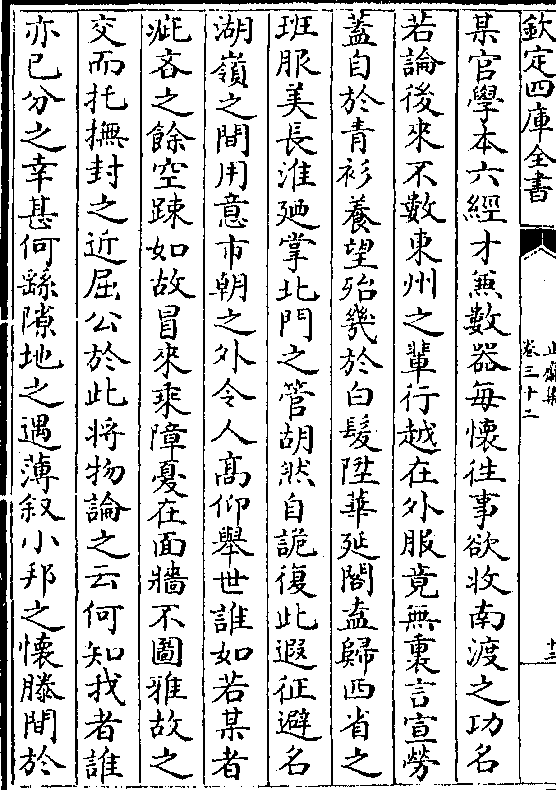 欽定四庫全書
止齋集
卷三十二
十三
某官學本六經才兼數器每懷往事欲收南渡之功名
若論後來不數東州之輩行越在外服竟無裏言宣勞
蓋自於青衫養望殆幾於白髮陞華延閣盍歸西省之
班服美長淮廼掌北門之管胡然自詭復此遐征避名
湖嶺之間用意市朝之外令人高仰舉世誰如若某者
疵吝之餘空踈如故冒來乘障憂在面牆不圖雅故之
交而托撫封之近屈公於此將物論之云何知我者誰
亦已分之幸甚何繇隙地之遇薄叙小邦之懷滕間於